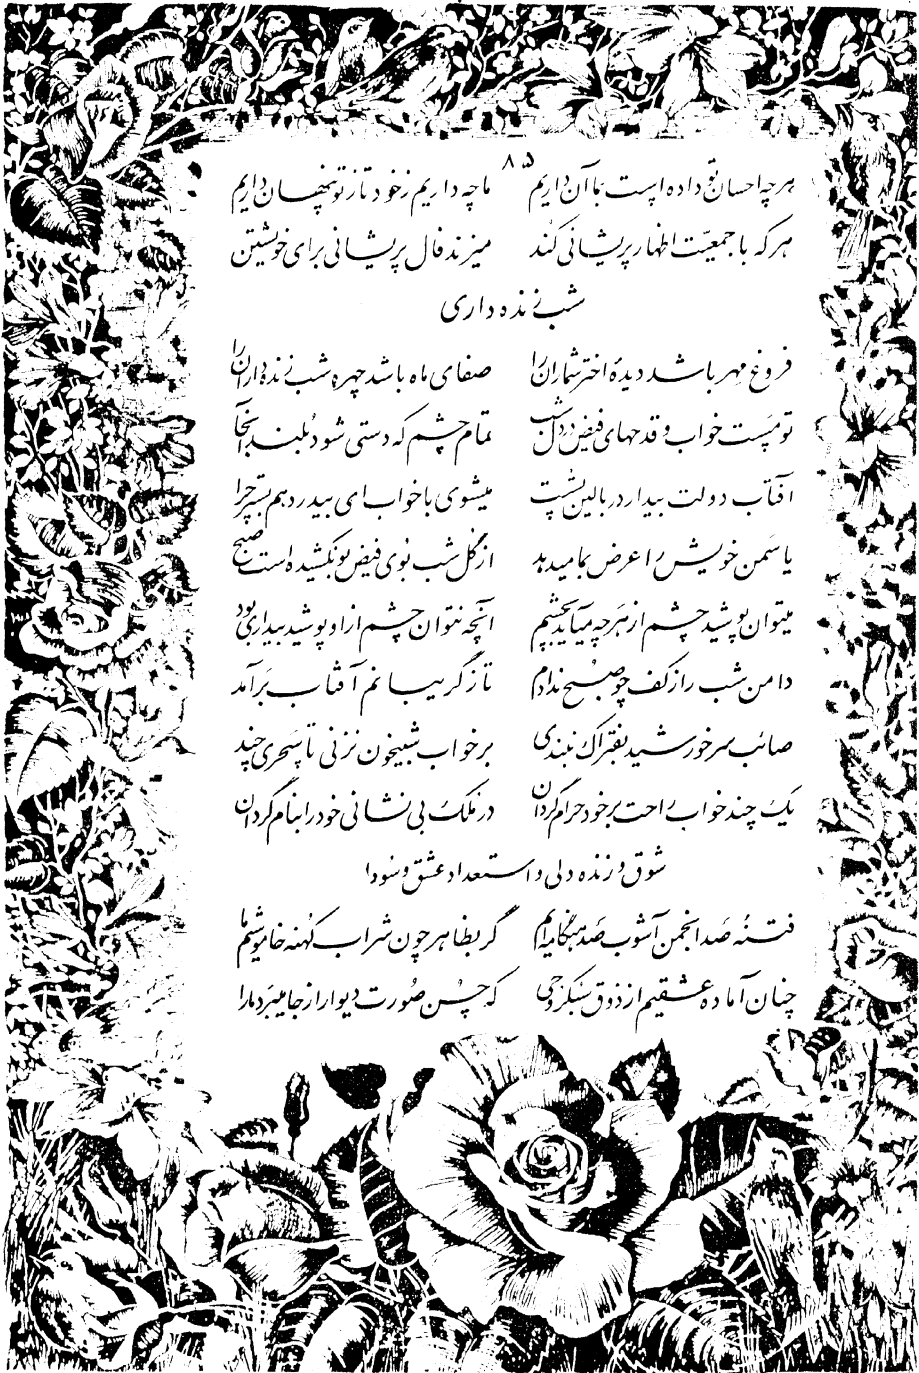 ۸۵
هرچه احسان تو داده است بما آن داریم ما چه داریم ز خود تا ز تو پنهان داریم
هر که با جمعیّت اظهار پریشانی کند میزند فال پریشانی برای خویشتن
شب زنده داری
فروغ مهر باشد دیدۀ اختر شماران را صفای ماه باشد چهره شب زنده داران را
تو مست خواب و قدحهای فیض در دل شب تمام چشم که دستی شود بلند اینجا
آفتاب دولت بیدار در بالین تست میشوی با خواب ای بیدرد هم بستر چرا
یاسمن خویش را عرض بما میدهد از گل شب بوی فیض بو نکشیده است صبح
میتوان پوشید چشم از هرچه میآید بچشم آنچه نتوان چشم از او پوشید بیداری بود
دامن شب را ز کف چو صبح ندادم تا ز گریبانم آفتاب برآمد
صائب سر خورشید بفتراک نبندی بر خواب شبیخون نزنی تا سحری چند
یک چند خواب راحت بر خود حرام گردان در ملک بی نشانی خود را بنام گردان
شوق و زنده دلی و استعداد عشق و سودا
فتنه صد انجمن آشوب صد هنگامه ایم گر بظاهر چون شراب کهنه خاموشیم ما
چنان آماده عشقیم از ذوق سبکروحی که حسن صورت دیوار از جا میبرد ما را